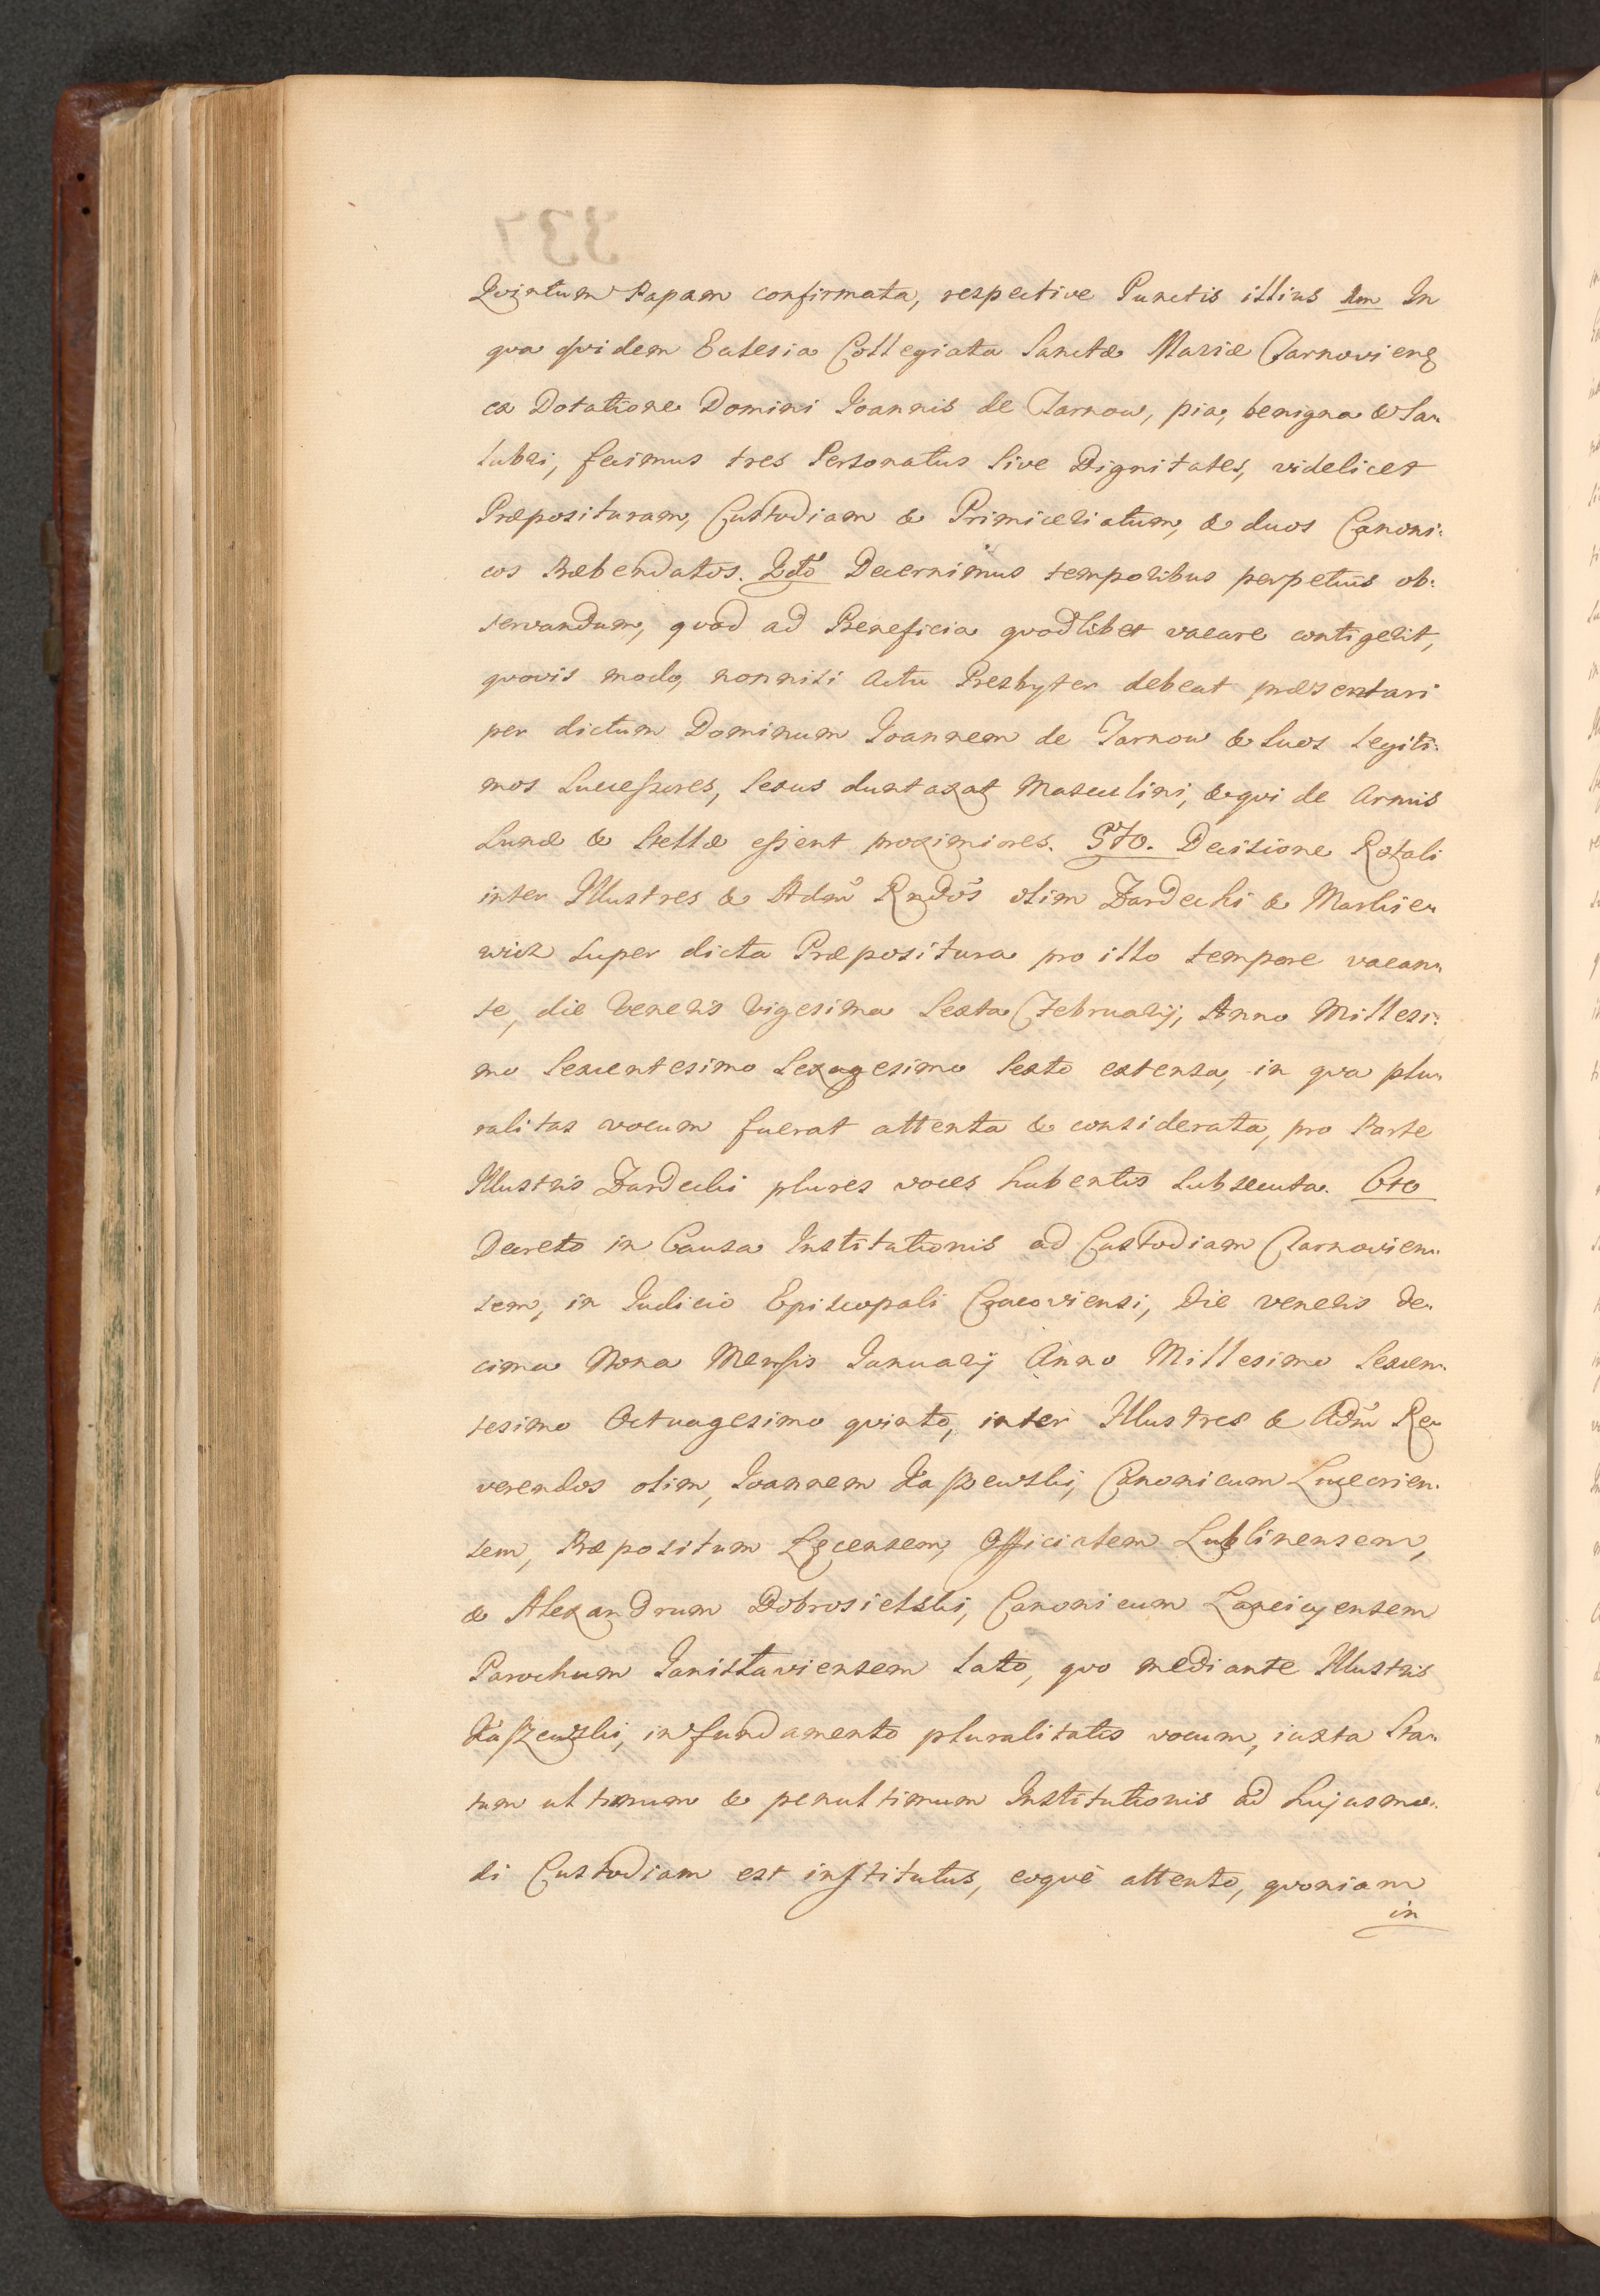 Qvintum Papam confirmata, respective Punctis illius 1m In
qva qvidem Eclesia Collegiata Sanctæ Mariæ Tarnovieng
ex Dotatione Domini Joannis de Tarnow, pia, benigna & Sa-
lubri, fecimus tres Personatus Sive Dignitates, videlicet
Præposituram, Custodiam & Primiceriatum, & duos Canoni-
cos Præbendatos. 2do Decernimus temporibus perpetuis ob-
servandum, qvod ad Beneficia qvodlibet vacare contigerit,
qvovis modo, nonnisi Actu Presbyter debeat præsentari
per dictum Dominum Joannem de Tarnow & Suos Legiti-
mos Successores, Sexus duntaxat Masculini, & qvi de Armis
Lunæ & Stellæ essent proximiores. 5to. Decisione Rotali
inter Illustres & Adm Rndos olim Zardecki & Markie-
wicz Super dicta Præpositura pro illo tempore vacan-
te, die Veneris Vigesima Sexta February, Anno Millesi-
mo Sexcentesimo Sexagesimo Sexto extensa, in qva plu-
ralitas vocum fuerat attenta & considerata, pro Parte
Illustris Zardecki plures voces habentis Subsecuta. 6to
Decreto in Causa Institutionis ad Custodiam Tarnovien-
sem, in Judicio Episcopali Cracoviensi, Die veneris de-
cima Nona Mensis January Anno Millesimo Sexcen-
tesimo Octuagesimo qvinto, inter Illustres & Adm Re-
verendos olim, Joannem Kaszewski, Canonicum Luceorien-
sem, Præpositum Lgcensem, Officialem Lublinensem,
& Alexandrum Dobrosielski, Canonicum Lanciciensem
Parochum Janislaviensem lato, qvo mediante Illustris
Kaszewski, in fundamento pluralitatis vocum, iuxta Sta-
tum ultimum & penultimum Institutionis ad hujusmo-
di Custodiam est institutus, eoqve attento, qvoniam
in